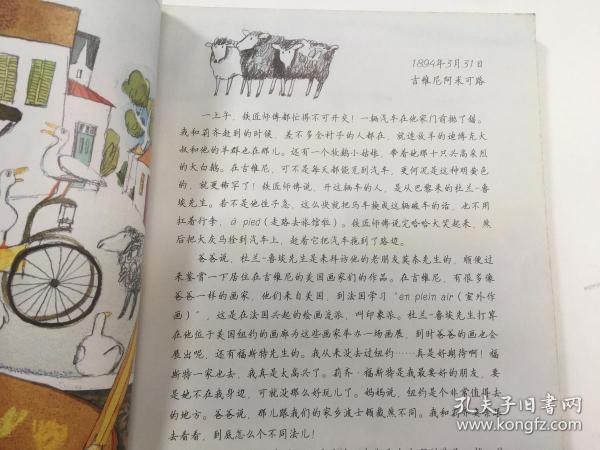 1894年3月31日
吉维尼阿米可路
一上午，铁匠师傅都忙得不可开交！一辆汽车在他家门前抛了锚。
我和莉齐赶到的时候，差不多全村子的人都在，就连放羊的迪博克大
叔和他的羊群也在那儿。还有一个牧鹅小姑娘，带着她那十只兴高采烈
的大白鹅。在吉维尼，可不是每天都能见到汽车，更何况是这种明黄色
的，就更稀罕了！铁匠师傅说，开这辆车的人，是从巴黎来的杜兰-鲁
埃先生。若不是他性子急，这么快就把马车换成这辆破车的话，也不用
扛着行李，à pied（走路去旅馆啦）。铁匠师傅说完哈哈大笑起来，然
后把大灰马拴到汽车上，赶着它把汽车拖到了路边。
爸爸说，杜兰-鲁埃先生是来拜访他的老朋友莫奈先生的，顺便过
来鉴赏一下居住在吉维尼的美国画家们的作品。在吉维尼，有很多像
爸爸一样的画家，他们来自美国，到法国学习“en plein air（室外作
画）”，这是在法国兴起的绘画流派，叫印象派。杜兰-鲁埃先生打算
在他位于美国纽约的画廊为这些画家举办一场画展，到时爸爸的画也会
展出呢，还有福斯特先生的。我从来没去过纽约……真是好期待啊！福
斯特一家也去，我真是太高兴了。莉齐·福斯特是我最要好的朋友，要
是她不在我身边，可就没那么好玩儿了。妈妈说，纽约是个非常值得去
的地方。爸爸说，那儿跟我们的家乡波士顿截然不同。我和莉齐要亲眼
去看看，到底怎么个不同法儿！
孔夫子旧书网